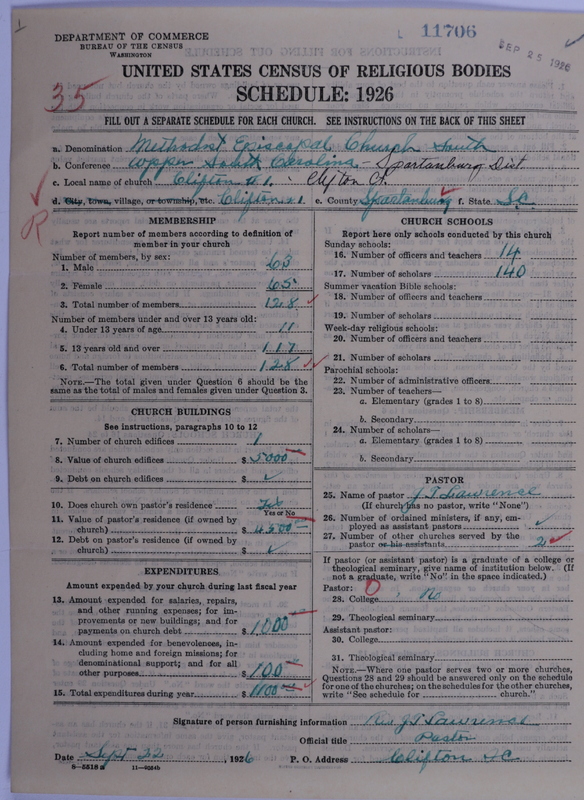 DEPARTMENT OF COMMERCE
BUREAU OF THE CENSUS
WASHINGTON
11706
SEP 25 1926
UNITED STATES CENSUS OF RELIGIOUS BODIES
35
SCHEDULE: 1926
FILL OUT A SEPARATE SCHEDULE FOR EACH CHURCH. SEE INSTRUCTIONS ON THE BACK OF THIS SHEET
a. Denomination Methodist Episcopal Church South
b. Conference Upper South Carolina - Spartanburg Dist.
c. Local name of church Clifton # 1. Clifton Ct.
d. City, town, village, or township, etc. Clifton # 1. e. County Spartanburg f. State S.C.
R
MEMBERSHIP
Report number of members according to definition of member in your church
Number of members, by sex:
1. Male 63
2. Female 65
3. Total number of members 128
Number of members under and over 13 years old:
4. Under 13 years of age 11
5. 13 years old and over 117
6. Total number of members 128
NOTE.—The total given under Question 6 should be the same as the total of males and females given under Question 3.
CHURCH BUILDINGS
See instructions, paragraphs 10 to 12
7. Number of church edifices 1
8. Value of church edifices $ 5000
9. Debt on church edifices $
10. Does church own pastor's residence Yes
Yes or No
11. Value of pastor's residence (if owned by church) $ 4500
12. Debt on pastor's residence (if owned by church) $
EXPENDITURES
Amount expended by your church during last fiscal year
13. Amount expended for salaries, repairs, and other running expenses; for improvements or new buildings; and for payments on church debt $ 1000
14. Amount expended for benevolences, including home and foreign missions; for denominational support; and for all other purposes $ 100
15. Total expenditures during year $ 1100
CHURCH SCHOOLS
Report here only schools conducted by this church
Sunday schools:
16. Number of officers and teachers 14
17. Number of scholars 140
Summer vacation Bible schools:
18. Number of officers and teachers
19. Number of scholars
Week-day religious schools:
20. Number of officers and teachers
21. Number of scholars
Parochial schools:
22. Number of administrative officers
23. Number of teachers—
a. Elementary (grades 1 to 8)
b. Secondary
24. Number of scholars—
a. Elementary (grades 1 to 8)
b. Secondary
PASTOR
25. Name of pastor J T Lawrence
(If church has no pastor, write "None")
26. Number of ordained ministers, if any, employed as assistant pastors
27. Number of other churches served by the pastor or his assistants 2
If pastor (or assistant pastor) is a graduate of a college or theological seminary, give name of institution below. (If not a graduate, write "No" in the space indicated.)
Pastor: 0
28. College No
29. Theological seminary
Assistant pastor:
30. College
31. Theological seminary
NOTE.—Where one pastor serves two or more churches, Questions 28 and 29 should be answered only on the schedule for one of the churches; on the schedules for the other churches, write "See schedule for church."
Signature of person furnishing information Rev. J T Lawrence
Official title Pastor
Date Sept 22, 1926 P. O. Address Clifton S C.
8—5518 a 11—9264b